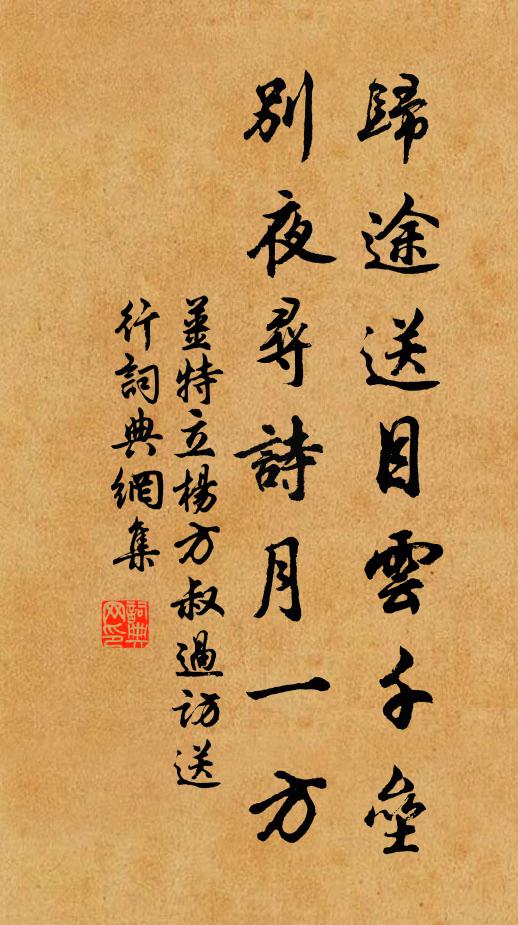 歸途送目雲千壘
別夜尋詩月一方
薑特立楊方叔過訪送
行詞典網集
詞典
網印